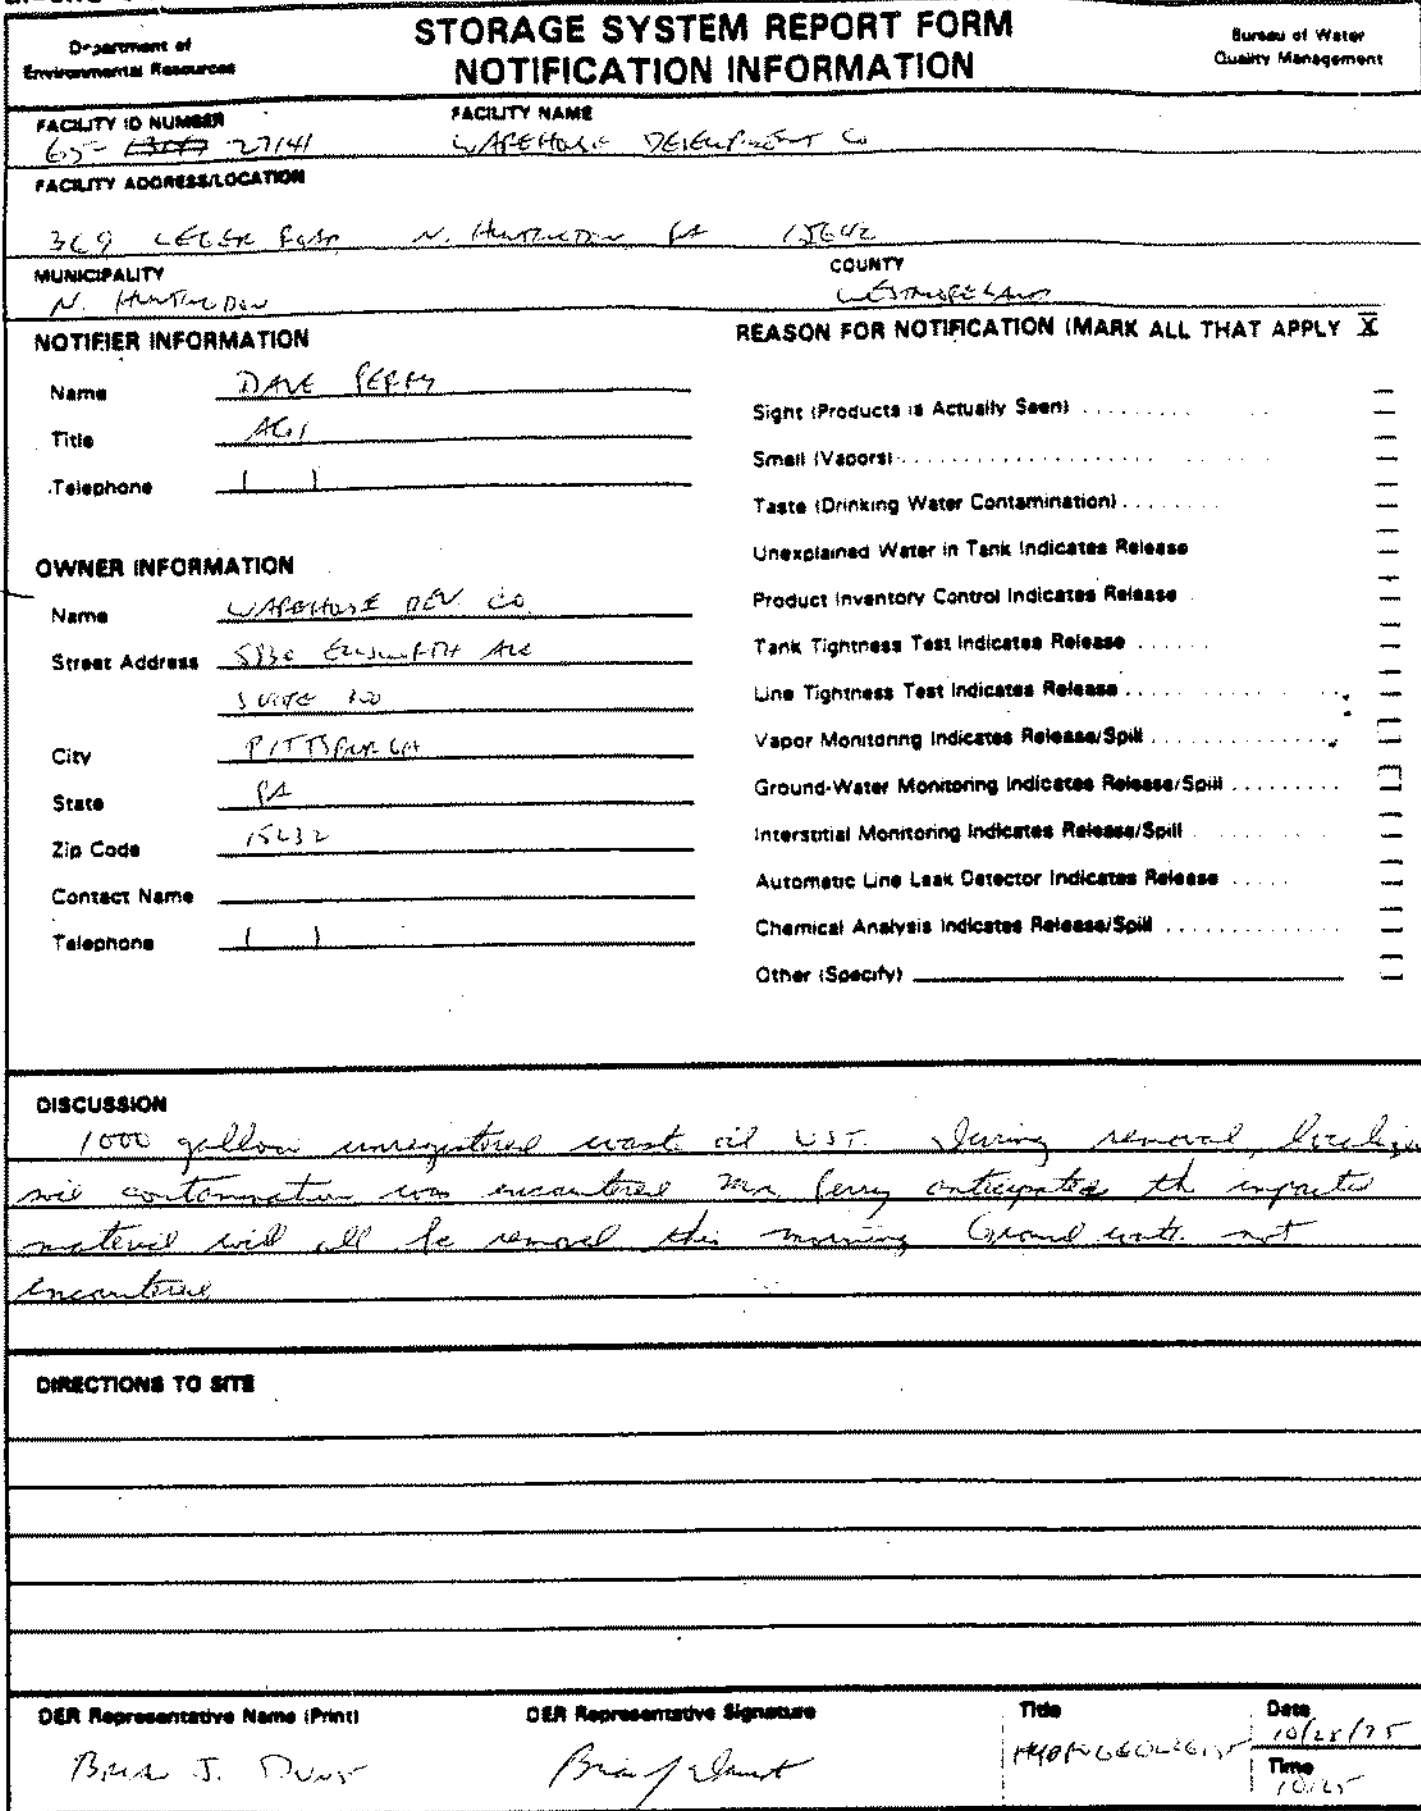 Department of
Environmental Resources
STORAGE SYSTEM REPORT FORM
NOTIFICATION INFORMATION
Bureau of Water
Quality Management
FACILITY ID NUMBER
65- 27141
FACILITY NAME
WAREHOUSE DEVELOPMENT CO
FACILITY ADDRESS/LOCATION
369 LEGER ROAD N. HUNTINGDON PA 15642
MUNICIPALITY
N. HUNTINGDON
COUNTY
WESTMORELAND
NOTIFIER INFORMATION
Name DAVE PERRY
Title
Telephone ( )
OWNER INFORMATION
Name WAREHOUSE DEV. CO.
Street Address ELLSWORTH AVE
SUITE
City PITTSBURGH
State PA
Zip Code 15232
Contact Name
Telephone ( )
REASON FOR NOTIFICATION (MARK ALL THAT APPLY X
Sight (Products is Actually Seen)
Smell (Vapors)
Taste (Drinking Water Contamination)
Unexplained Water in Tank Indicates Release
Product Inventory Control Indicates Release
Tank Tightness Test Indicates Release
Line Tightness Test Indicates Release
Vapor Monitoring Indicates Release/Spill
Ground-Water Monitoring Indicates Release/Spill
Interstitial Monitoring Indicates Release/Spill
Automatic Line Leak Detector Indicates Release
Chemical Analysis Indicates Release/Spill
Other (Specify)
DISCUSSION
1000 gallon unregistered waste oil UST. During removal, localized
soil contamination was encountered Mr Perry anticipates the impacted
material will all be removed this morning Ground water not
encountered
DIRECTIONS TO SITE
DER Representative Name (Print)
Brian J.
DER Representative Signature
Title
HYDROGEOLOGIST
Date
Time